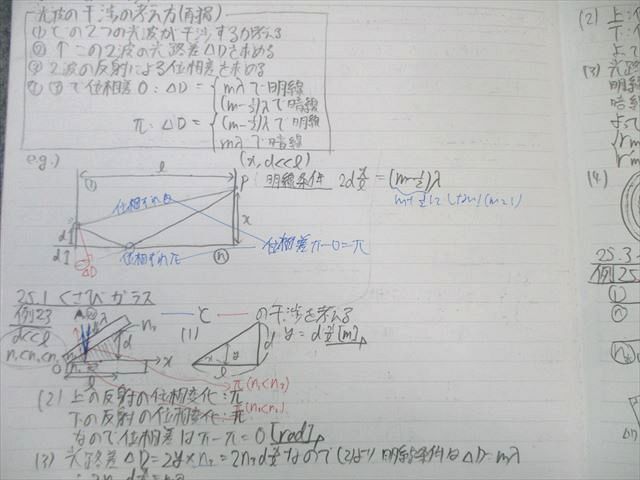 光波の干渉の考え方(再掲)
① どの2つの光波が干渉するか考える
② ↑この2波の光路差ΔDを求める
③ 2波の反射による位相差を求める
② ③で位相差0:ΔD= { mλで明線
(m-1/2)λで暗線
π:ΔD= { (m-1/2)λで明線
mλで暗線
e.g.)
(x,d<<l)
l
①
P
明線条件 2d x/l = (m-1/2)λ
m+1/2にしない(m≧1)
位相ずれ0
x
d
d
ΔD
位相ずれπ
⑪
位相差π-0=π
25.1 くさびガラス
例23
d<<l
n1<n2<n3
λ
n3
d
x
O
l
と の干渉を考える
(1)
y = d x/l [m]
x
y
d
l
π(n1<n2)
π(n2<n3)
(2) 上の反射の位相変化:π
下の反射の位相変化:π
なので位相差はπ-π=0[rad]
(3) 光路差ΔD=2y×n2=2n2d x/l なので(2)より明線条件はΔD=mλ
(2) 上
下
よって
(3) 光路
明線
暗線
よって
(4)
25.3
例25
①